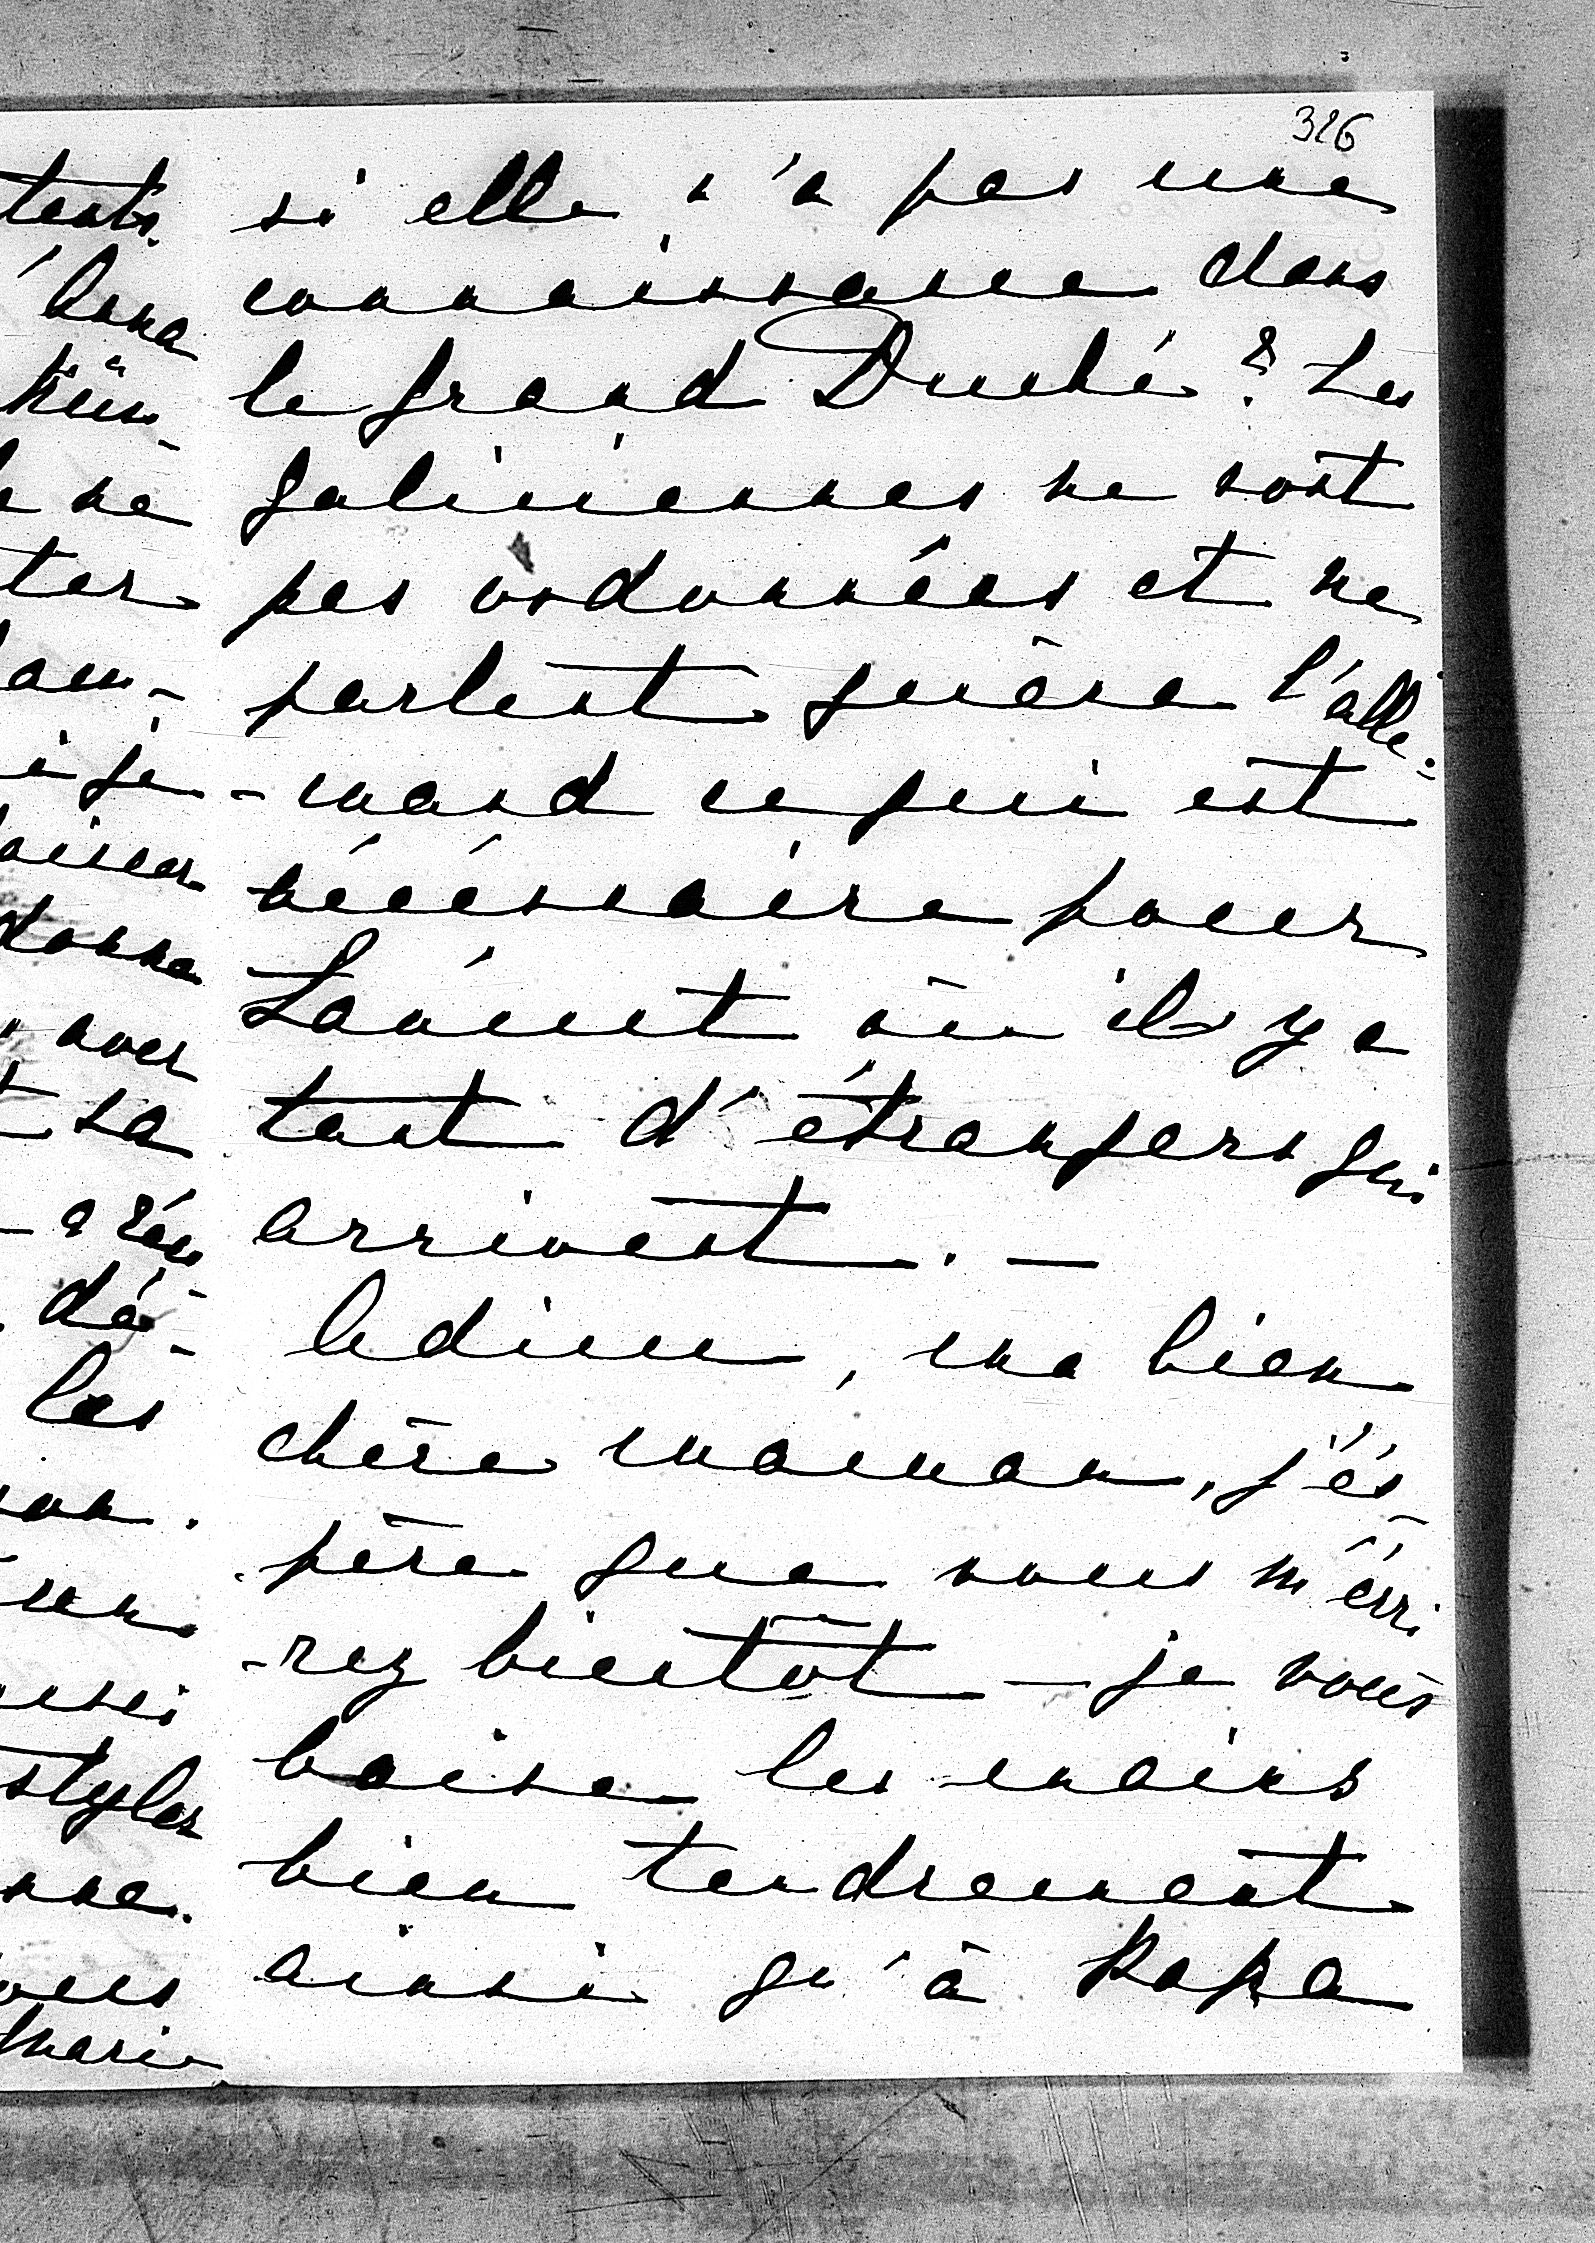 326
si elle n'a pas une
connaissance dans
le grand Duché? Les
galiciennes ne sont
pas ordonnées et ne
parlent guère l'alle-
-mand ce qui est
nécéssaire pour
Łańcut où il y a
tant d'étrangers qui
arrivent. —
Adieu, ma bien
chère maman, j'és-
père que vous m'écri
-rez bientôt — je vous
baise les mains
bien tendrement
ainsi qu'à Papa